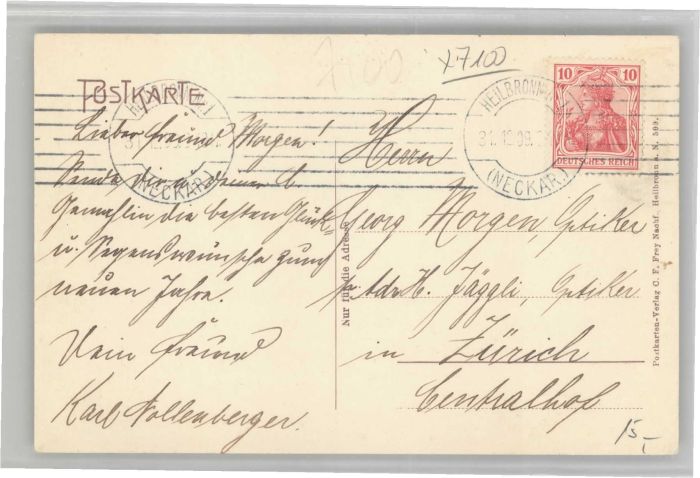 7100
x7100
POSTKARTE
HEILBRONN
(NECKAR)
HEILBRONN
31.12.09.
(NECKAR)
10 10
DEUTSCHES REICH
Lieber Freund Morgen!
Sende dir u. deiner l.
Gemahlin die besten Glück-
u. Segenswünsche zum
neuen Jahre.
Dein Freund
Karl Nollenberger.
Nur für die Adresse
Herrn
Georg Morgen, Optiker
p. Adr. H. Jäggli, Optiker
in Zürich
Centralhof
Postkarten-Verlag C. F. Frey Nachf., Heilbronn a. N. 599.
15,-